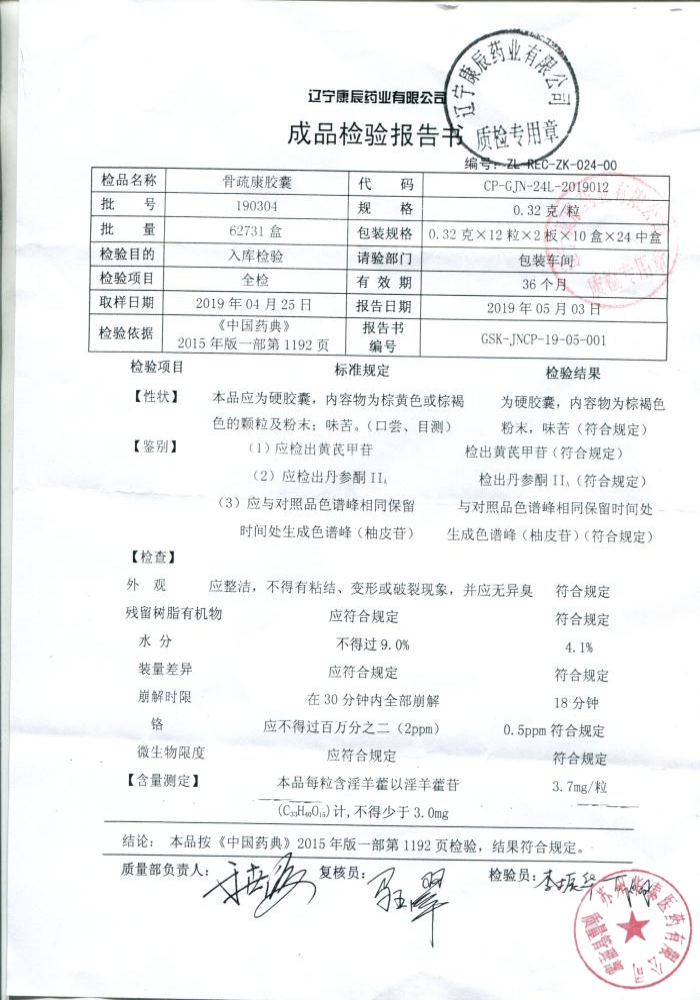 辽宁康辰药业有限公司
辽宁康辰药业有限公司
质检专用章
成品检验报告书
编号：ZL-REC-ZK-024-00
检品名称 骨疏康胶囊 代 码 CP-GJN-24L-2019012
批 号 190304 规 格 0.32 克/粒
批 量 62731 盒 包装规格 0.32 克×12 粒×2 板×10 盒×24 中盒
检验目的 入库检验 请验部门 包装车间
检验项目 全检 有 效 期 36 个月
取样日期 2019 年 04 月 25 日 报告日期 2019 年 05 月 03 日
检验依据 《中国药典》 2015 年版一部第 1192 页 报告书编号 GSK-JNCP-19-05-001
质检专用章
检验项目 标准规定 检验结果
【性状】 本品应为硬胶囊，内容物为棕黄色或棕褐 为硬胶囊，内容物为棕褐色
色的颗粒及粉末；味苦。（口尝、目测） 粉末，味苦（符合规定）
【鉴别】 （1）应检出黄芪甲苷 检出黄芪甲苷（符合规定）
（2）应检出丹参酮 IIA 检出丹参酮 IIA（符合规定）
（3）应与对照品色谱峰相同保留 与对照品色谱峰相同保留时间处
时间处生成色谱峰（柚皮苷） 生成色谱峰（柚皮苷）（符合规定）
【检查】
外 观 应整洁，不得有粘结、变形或破裂现象，并应无异臭 符合规定
残留树脂有机物 应符合规定 符合规定
水 分 不得过 9.0% 4.1%
装量差异 应符合规定 符合规定
崩解时限 在 30 分钟内全部崩解 18 分钟
铬 应不得过百万分之二（2ppm） 0.5ppm 符合规定
微生物限度 应符合规定 符合规定
【含量测定】 本品每粒含淫羊藿以淫羊藿苷 3.7mg/粒
(C33H40O15)计,不得少于 3.0mg
结论： 本品按《中国药典》2015 年版一部第 1192 页检验，结果符合规定。
质量部负责人： 复核员： 检验员：李振华
医药有限公司